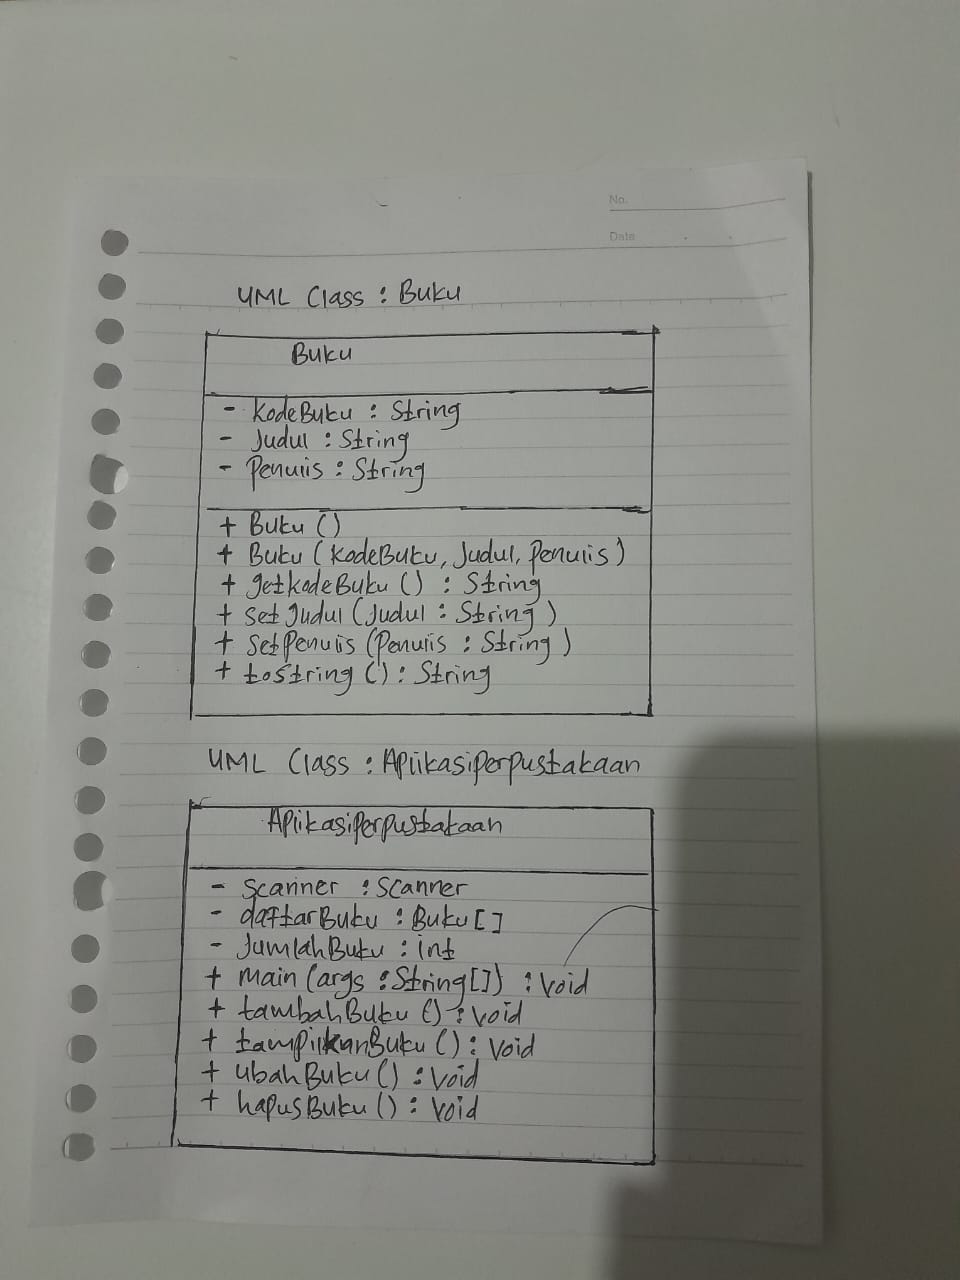 No.
Date
UML Class : Buku
Buku
- KodeBuku : String
- Judul : String
- Penulis : String
+ Buku ()
+ Buku (KodeBuku, Judul, Penulis)
+ getkodeBuku () : String
+ setJudul (Judul : String)
+ SetPenulis (Penulis : String)
+ toString () : String
UML Class : AplikasiPerpustakaan
AplikasiPerpustakaan
- Scanner : Scanner
- daftarBuku : Buku []
- Jumlah Buku : int
+ Main (args : String[]) : Void
+ tambahBuku () : Void
+ tampilkanBuku () : Void
+ ubahBuku () : Void
+ hapusBuku () : Void